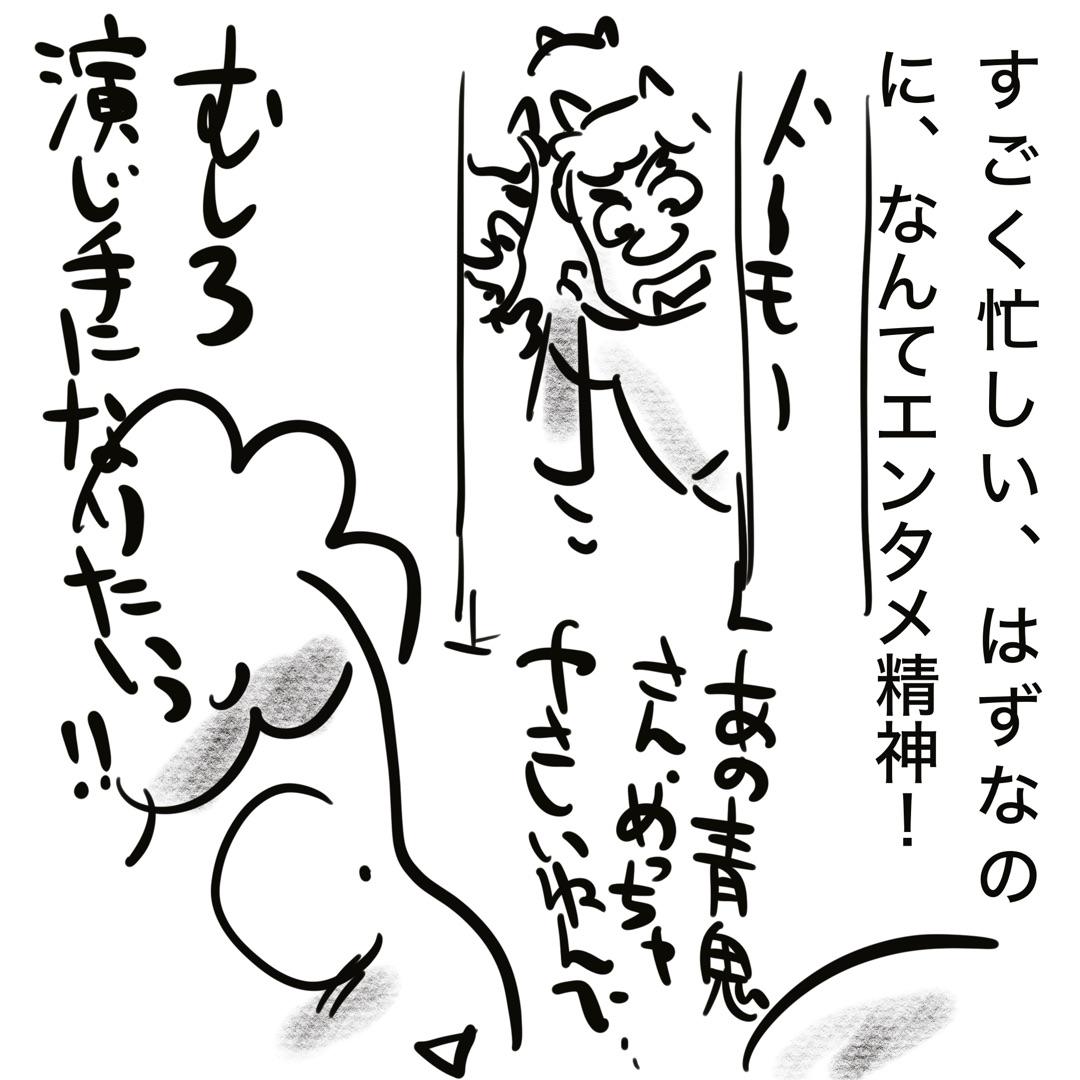 すごく忙しい、はずなの
に、なんてエンタメ精神！
ドーモー
あの青鬼
さん、めっちゃ
やさしいねんで…
むしろ
演じ手になりたいっ!!